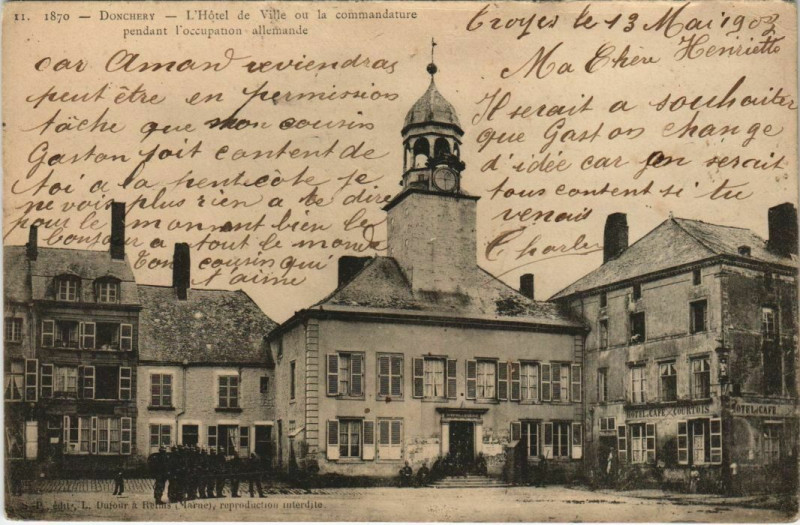 11. 1870 — DONCHERY — L'Hôtel de Ville ou la commandature
pendant l'occupation allemande
Troyes le 13 Mai 1903
Ma Chère Henriette
Il serait a souhaiter
que Gaston change
d'idée car j'en serait
tous content si tu
venais
Charles
car Amand reviendras
peut être en permission
tâche que mon cousin
Gaston soit content de
toi a la pentecôte je
ne vois plus rien a te dire
pour le moment bien le
bonjour a tout le monde
Ton cousin qui
t'aime
HOTEL & CAFÉ COURTOIS
HOTEL & CAFÉ
édit. L. Dufour à Reims (Marne), reproduction interdite